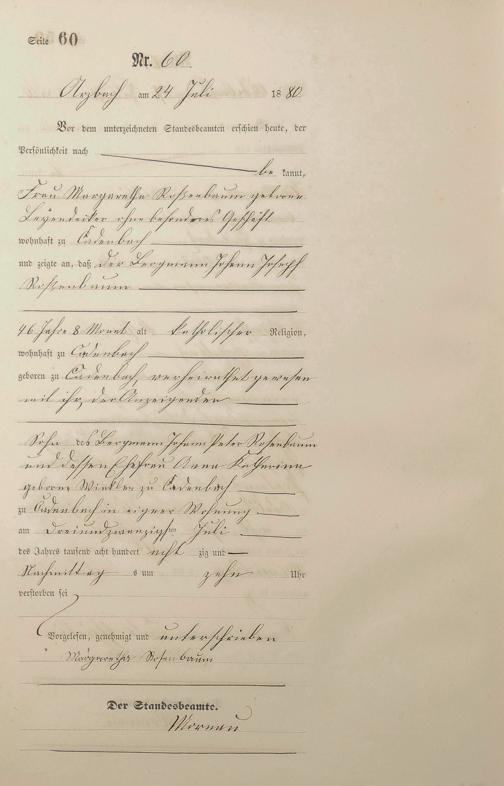 Seite 60
Nr. 60
Arzbach am 24 Juli 1880
Vor dem unterzeichneten Standesbeamten erschien heute, der
Persönlichkeit nach
be kannt,
Frau Margaretha Rosenbaum geborne
ohne besonderes Geschäft
wohnhaft zu Cadenbach
und zeigte an, daß der Bergmann Johann Joseph
Rosenbaum
46 Jahre 8 Monat alt katholischer Religion,
wohnhaft zu Cadenbach
geboren zu Cadenbach, verheirathet gewesen
mit ihr, der Anzeigenden
Sohn des Bergmann Johann Peter Rosenbaum
und dessen Ehefrau Anna Katharina
geborne Winkler zu Cadenbach
zu Cadenbach in eigner Wohnung
am dreiundzwanzigsten Juli
des Jahres tausend acht hundert acht zig und
Nachmittag s um zehn Uhr
verstorben sei
Vorgelesen, genehmigt und unterschrieben
Margaretha Rosenbaum
Der Standesbeamte.